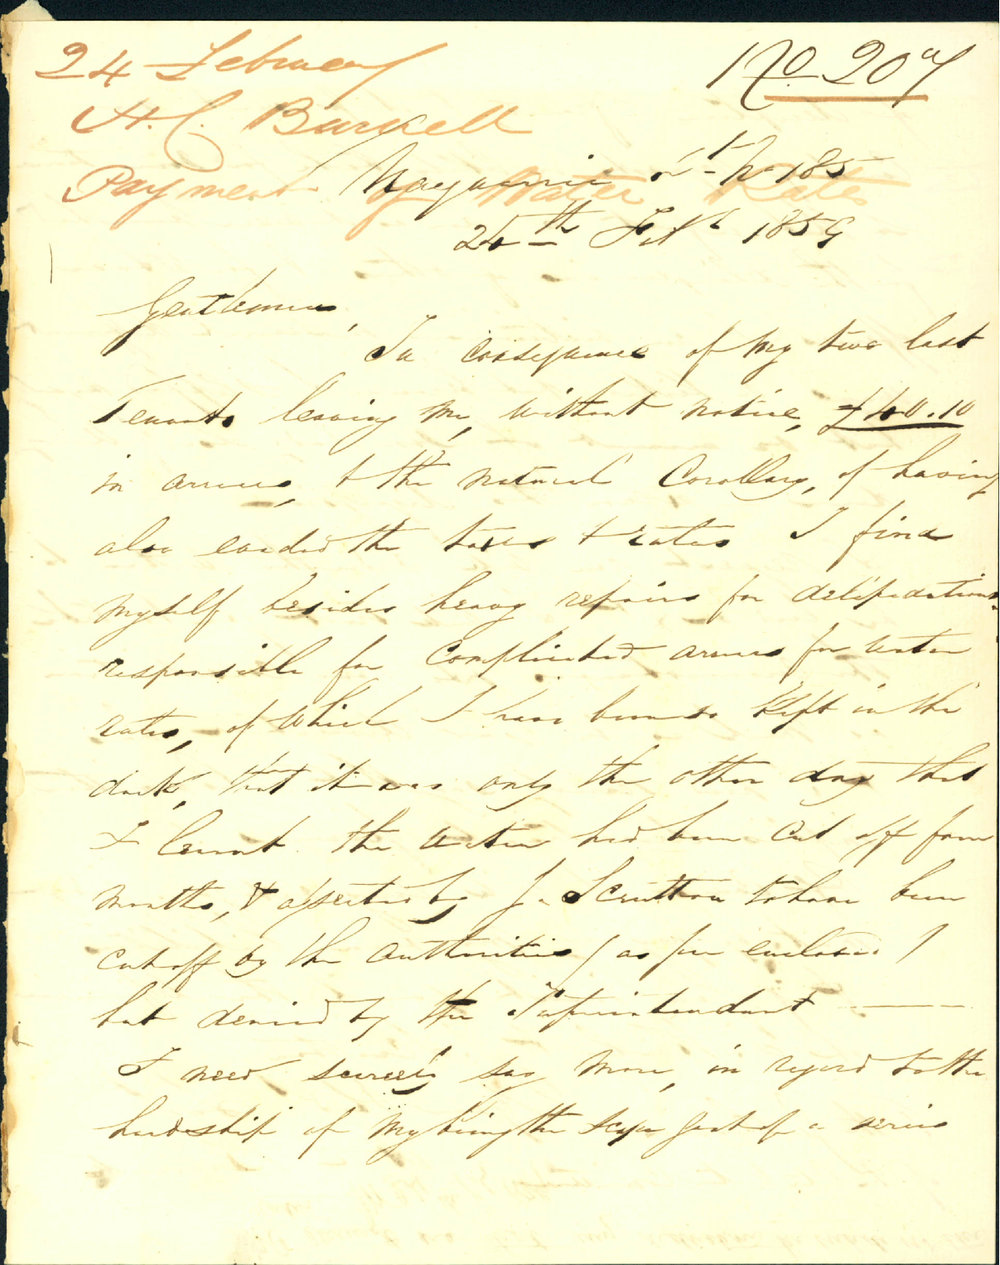 24 February
No. 207
H. C. Burnell
Payment of Water Rates
Macquarie St No 185
24th Feb 1859
Gentlemen,
In consequence of my two last
Tenants leaving me, without notice, £40.10
in arrears, & the natural Corollary, of having
also evaded the taxes & rates I find
myself besides heavy repairs for delipidations
responsible for Complicated arrears for water
rates, of which I have been so kept in the
dark, that it was only the other day that
I learnt the water had been cut off four
months, & asserted by J. Scrutton to have been
cut off by the authorities (as per enclosed)
but denied by the Superintendant
I need scarcely say more, in regard to the
hardship of my being the scape goat of a series